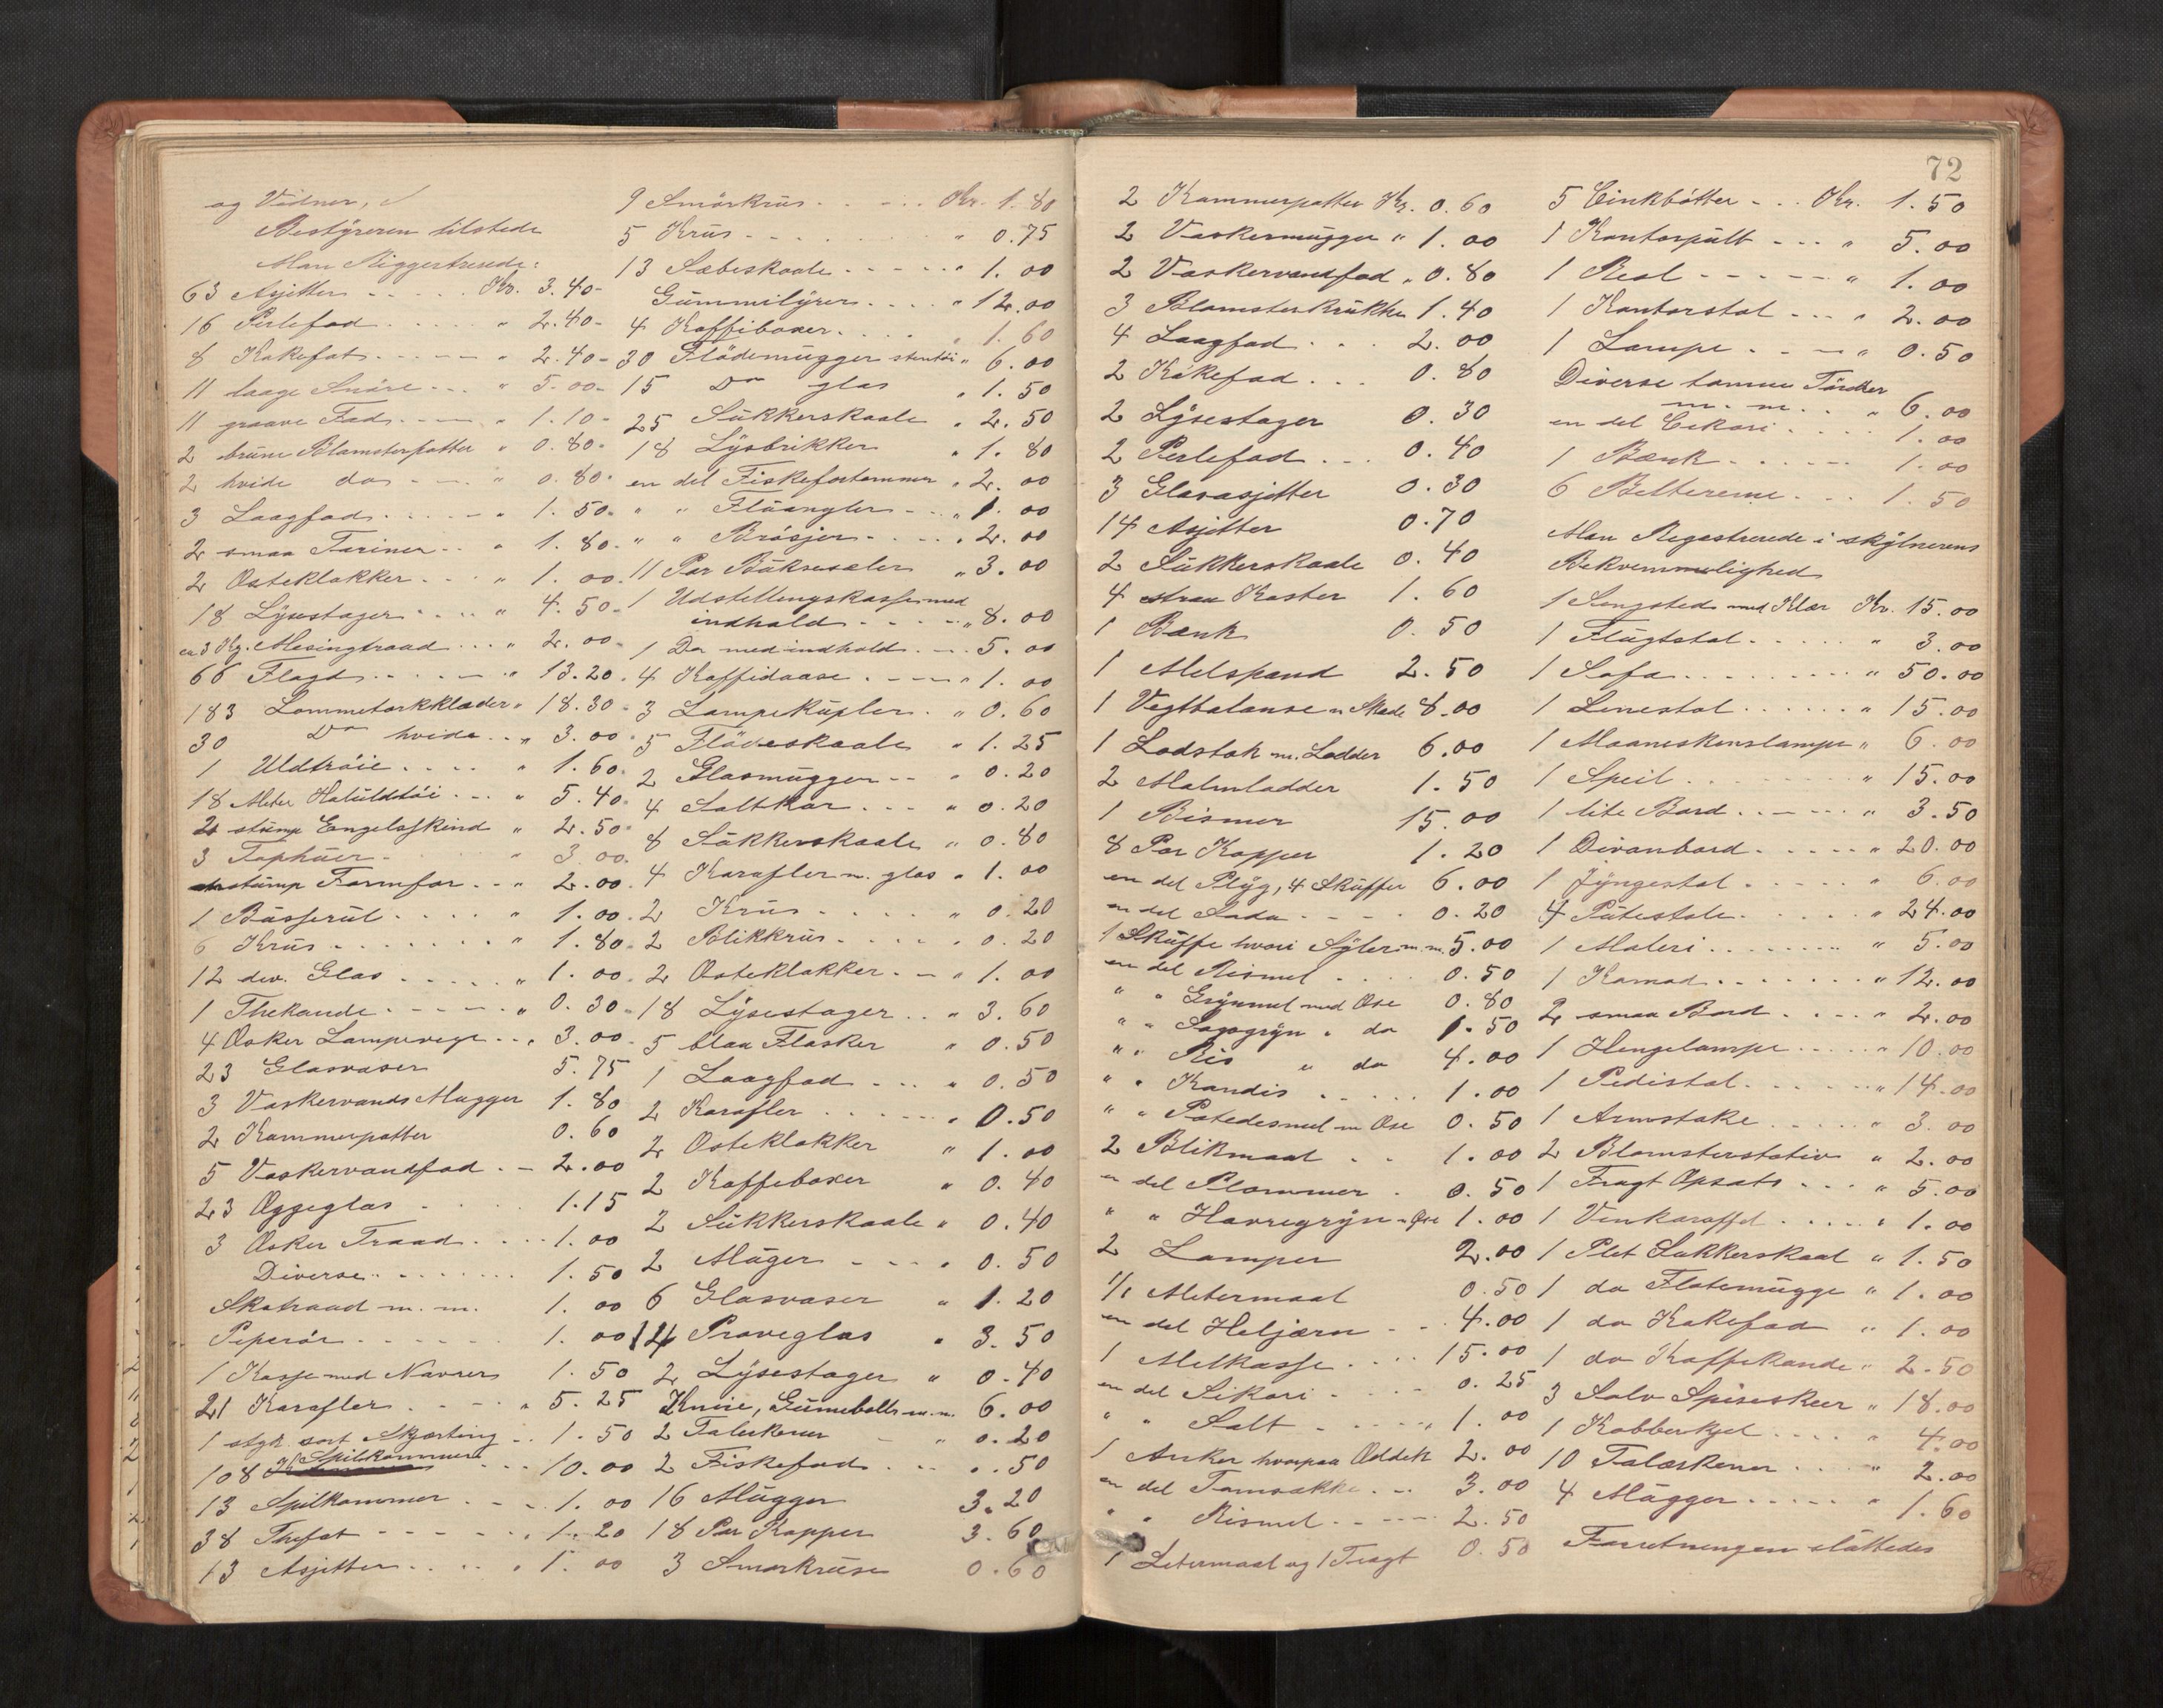 og Vidner,
Bestÿreren tilstede
Man Riggestrerede:
63 Asjetter ..... Kr. 3.40-
16 Perlefad .... " 2.40-
8 Kakefat ---- " 2.40-
11 laage Snöre --- " 5.00-
11 graave Fad ---- " 1.10-
2 brune Blomsterpotter " 0.80-
2 hvide do - - - " 0.80-
3 Laagfad .... " 1.50-
2 smaa Tariner .. " 1.80-
2 Osteklokker --- " 1.00-
18 Lÿsestager .... " 4.50-
ca 3 Kg. Mesingtraad ... " 2.00-
66 Flagd ..... " 13.20-
183 Lommetørkklæder " 18.30-
30 Do hvide .. " 3.00-
1 Uldtröie .... " 1.60-
18 Meter Haluldtöi ... " 5.40-
2 stump Engelsskind " 2.50-
3 Tophuer . " 3.00-
stump Formfor .. " 2.00-
1 Busserul .... " 1.00-
6 Krus ....... " 1.80-
12 div. Glas ..... " 1.00-
1 Thekande ----- " 0.30-
4 Æsker Lampevege .. " 3.00-
23 Glasvaser 5.75
3 Vaskervands Mugger 1.80
2 Kammerpotter 0.60
5 Vaskervandfad .- 2.00
23 Æggeglas . . . . 1.15
3 Æsker Traad .... 1.00
Diverse ........ 1.50
Skotraad m. m. 1.00
Peperör ...... 1.00
1 Kasse med Navrer 1.50
21 Karafler .. - - " 5.25
1 styk sort Skjærting .. 1.50
108 Spilkommer ... 10.00
13 Spilkommer .. - 1.00
38 Thefat ------ " 1.20
13 Asjetter ..... " 1.00
9 Smörkrus ..... Kr. 1.80
5 Krus - - - . . . . " 0.75
13 Sæbeskaale ----- " 1.00
Gummilÿrer .... " 12.00
4 Kaffiboxer .... " 1.60
30 Flödemugger stentöi " 6.00
15 Do glas " 1.50
25 Sukkerskaale " 2.50
18 Lÿsbrikker " 1.80
en del Fiskefortommer " 2.00
" " Flüangler --- " 1.00
" " Brösjer .... " 2.00
11 Par Bukseseler " 3.00
1 Udstellingskasse med
indhold ---- " 8.00
1 Do med indhold . .. 5.00
4 Kaffidaase .---- " 1.00
3 Lampekupler . " 0.60
5 Flödeskaale " 1.25
2 Glasmugger -- " 0.20
4 Saltkar ... " 0.20
8 Sukkerskaale " 0.80
4 Karafler m. glas " 1.00
2 Krus ..... " 0.20
2 Blikkrus .... " 0.20
2 Osteklokker .-- " 1.00
18 Lÿsestager .. " 3.60
5 blaa Flasker " 0.50
1 Laagfad ... " 0.50
2 Karafler ....... " 0.50
2 Osteklokker " 1.00
2 Kaffeboxer " 0.40
2 Sukkerskaale " 0.40
2 Muger - - - . " 0.50
6 Glasvaser " 1.20
14 Prøveglas " 3.50
2 Lÿsestager " 0.40
Knive, Gumebolt m.m. 6.00
2 Taleskener - " 0.20
2 Fiskefad .... .50
16 Mugger 3.20
18 Par Kopper 3.60
3 Smørkruse 0.60
72
2 Kammerpotter Kr. 0.60
2 Vaskermugger " 1.00
2 Vaskervandfad " 0.80
3 Blomsterkrukker 1.40
4 Laagfad ... 2.00
2 Kakefad ... 0.80
2 Lÿsestager 0.30
2 Perlefad ... 0.40
3 Glasasjetter 0.30
14 Asjetter 0.70
2 Sukkerskaale 0.40
4 straa Koster 1.60
1 Bænk 0.50
1 Melspand 2.50
1 Vegtbalanse m Skade 8.00
1 Lodstok m. Lodder 6.00
2 Malmlodder 1.50
1 Bismer 15.00
8 Par Kopper 1.20
en del Plyg, 4 Skuffer 6.00
en del Soda - - - . 0.20
1 Skuffe hvori Syler m.m. 5.00
en del Rismel . . . 0.50
" " Grÿnmel med Øse 0.80
" " Sagogrÿn " do 1.50
" " Ris " do 4.00
" " Kandis ..... 1.00
" " Potedesmel m Øse 0.50
2 Blikmaal . . 1.00
en del Plommer . 0.50
" " Havregrÿn m Øse 1.00
2 Lamper 2.00
1/1 Metermaal 0.50
en del Heljærn - - 4.00
1 Melkasse .... 15.00
en del Sikori - - - - 0.25
" " Salt ------ 1.00
1 Anker hvorpaa Eddek 2.00
en del Tomsække ... 3.00
" " Rismel ----- 2.50
1 Letermaal og 1 Tragt 0.50
5 Cinkbötter - .. Kr. 1.50
1 Kontorpult --- " 5.00
1 Reol ------ " 1.00
1 Kontorstol --- " 2.00
1 Lampe . ---- " 0.50
Diverse tomme Tönder
m. m. .. " 6.00
en del Cekori .... 1.00
1 Bænk ...... 1.00
6 Beltereme ... 1.50
Man Regestrerede i skÿlnerens
Bekvemmelighed
1 Sengsted med Klær Kr. 15.00
1 Flugtstol ..... " 3.00
1 Sofa ......... " 50.00
1 Lenestol ...... " 15.00
1 Maaneskenslampe " 6.00
1 Speil ........ " 15.00
1 lite Bord ..---- " 3.50
1 Divanbord .---- " 20.00
1 Jÿngestol ..... " 6.00
4 Putestole ...... " 24.00
1 Maleri ........ " 5.00
1 Komod ....... " 12.00
2 smaa Bord .... " 2.00
1 Hengelampe ..... " 10.00
1 Pedistal ...... " 14.00
1 Armstake ..... " 3.00
2 Blomsterstativ " 2.00
1 Frugt Opsats ... " 5.00
1 Vinkaraffel ..... " 1.00
1 Plet Sukkerskaal " 1.50
1 do Flotemugge " 1.00
1 do Kakefad " 1.00
1 do Kaffekande " 2.50
3 Sølv Spiseskeer " 18.00
1 Kobberkjel .... " 4.00
10 Talærkener .... " 2.00
4 Mugger ..... " 1.60
Forretningen sluttedes